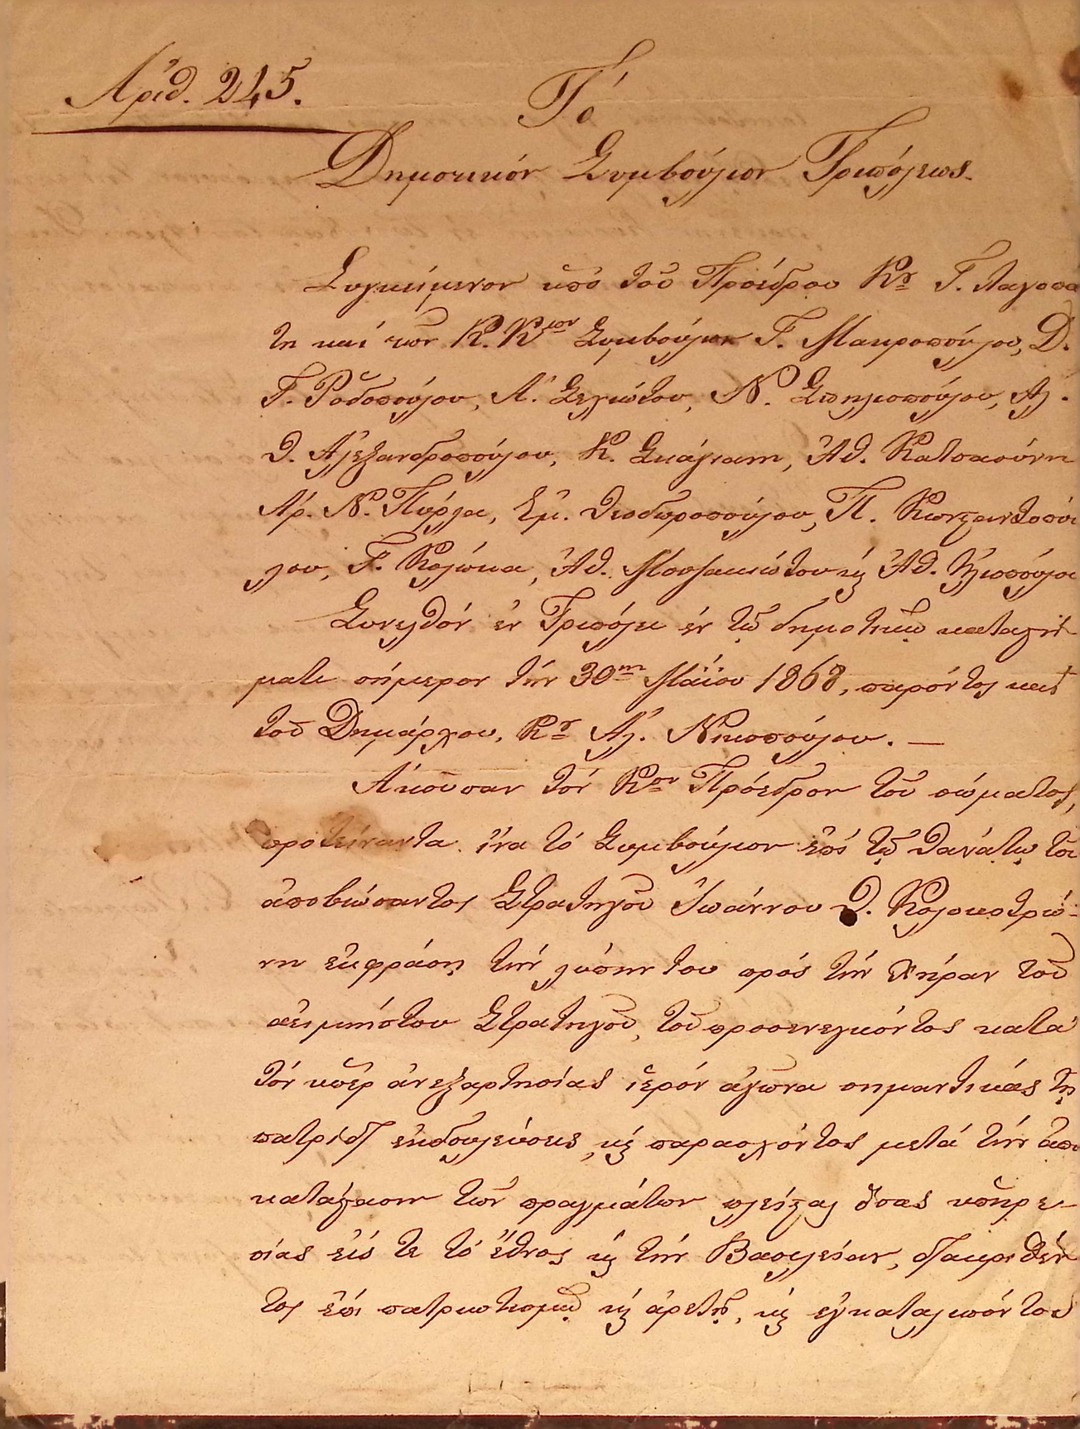 Ἀριθ. 245.
Τό
Δημοτικόν Συμβούλιον Τριπόλεως.
Συγκείμενον ὑπό τοῦ Προέδρου Κρ Γ. Ταγοπα
τη καί τῶν Κ. Κίων Συμβούλων Γ. Μακροπούλου, Δ.
Γ. Ροδοπούλου, Λ. Σελιώτου, Ν. Σπηλιοπούλου, Ἀλ.
Θ. Ἀλεξανδροπούλου, Κ. Σκάγιαννη, Ἀθ. Κατσαούνη
Ἀρ. Ν. Πύρλα, Ἐμ. Θεοδωροπούλου, Π. Κωνσταντοπού
λου, Γ. Κολώκα, Ἀθ. Μουζακιώτου καί Ἀθ. Ἠλιοπούλου
Συνελθόν ἐν Τριπόλει ἐν τῷ δημοτικῷ καταστή
ματι σήμερον τήν 30ην Μαΐου 1868, παρόντος καί
τοῦ Δημάρχου, Κρ Ἀλ. Νικοπούλου. —
Ἀκοῦσαν τόν Κον Πρόεδρον τοῦ σώματος,
προτείναντα ἵνα τό Συμβούλιον ἐπί τῷ θανάτῳ τοῦ
ἀποβιώσαντος Στρατηγοῦ Ἰωάννου Θ. Κολοκοτρώ-
νη ἐκφράσῃ τήν λύπην του πρός τήν χήραν τοῦ
ἀειμνήστου Στρατηγοῦ, τοῦ προσενεγκόντος κατά
τόν ὑπέρ ἀνεξαρτησίας ἱερόν ἀγῶνα σημαντικάς τῇ
πατρίδι ἐκδουλεύσεις, καί παρασχόντος μετά τήν ἀπο
κατάστασιν τῶν πραγμάτων πλείστας ὅσας ὑπηρε
σίας εἰς τε τό ἔθνος καί τήν Βασιλείαν, διακριθέν
τος ἐπί πατριωτισμῷ καί ἀρετῇ, καί ἐγκαταλιπόντος